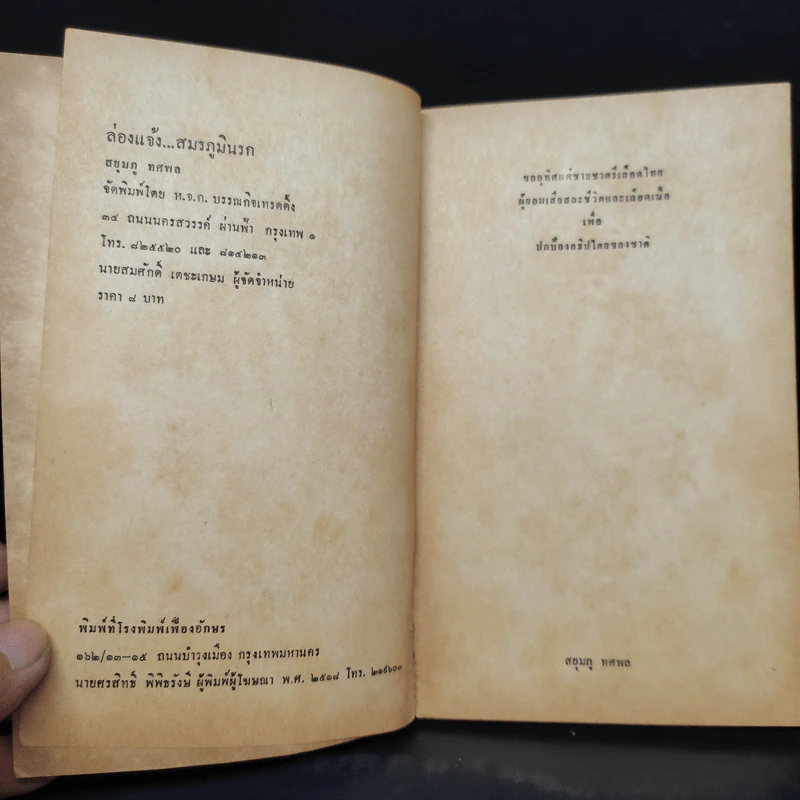 ล่องแจ้ง...สมรภูมินรก
สยุมภู ทศพล
จัดพิมพ์โดย ห.จ.ก. บรรณกิจเทรดดิ้ง
๓๔ ถนนนครสวรรค์ ผ่านฟ้า กรุงเทพ ๑
โทร. ๘๒๕๕๒๐ และ ๘๑๔๒๑๓
นายสมศักดิ์ เตชะเกษม ผู้จัดจำหน่าย
ราคา ๘ บาท
พิมพ์ที่โรงพิมพ์เฟื่องอักษร
๑๖๒/๑๓–๑๕ ถนนบำรุงเมือง กรุงเทพมหานคร
นายศรสิทธิ์ พิพิธรังษี ผู้พิมพ์ผู้โฆษณา พ.ศ. ๒๕๑๘ โทร. ๒๑๙๖๐๓
ขออุทิศแด่ชายชาตรีเลือดไทย
ผู้ยอมเสียสละชีวิตและเลือดเนื้อ
เพื่อ
ปกป้องอธิปไตยของชาติ
สยุมภู ทศพล